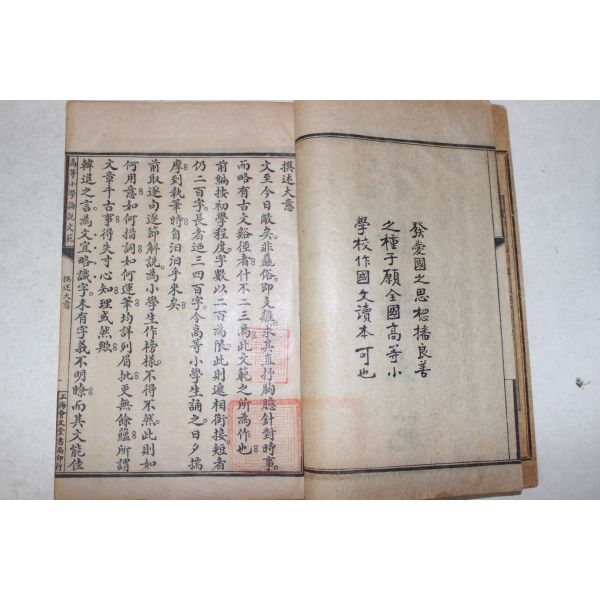 發愛國之思想播良善
之種子願全國高等小
學校作國文讀本可也
撰述大意
文至今日敝矣非龐俗即支離求其直抒胸臆針對時事
而略有古文谿徑者什不二三爲此文範之所爲作也
前編按初學程度字數以二百爲限此則遞相銜接短者
仍二百字長者逦三四百字令高等小學生誦之日夕揣
摩到執筆時自汨汨乎來矣
前取逐句逐節解説爲小學生作榜樣不得不然此則如
何用意如何措詞如何運筆均詳列眉批更無餘蘊所謂
文章千古事得失寸心知理或然歟
韓退之言爲文宜略識字未有字義不明瞭而其文能佳
高等小學論説文範
撰述大意
一
上海會文堂書局印行